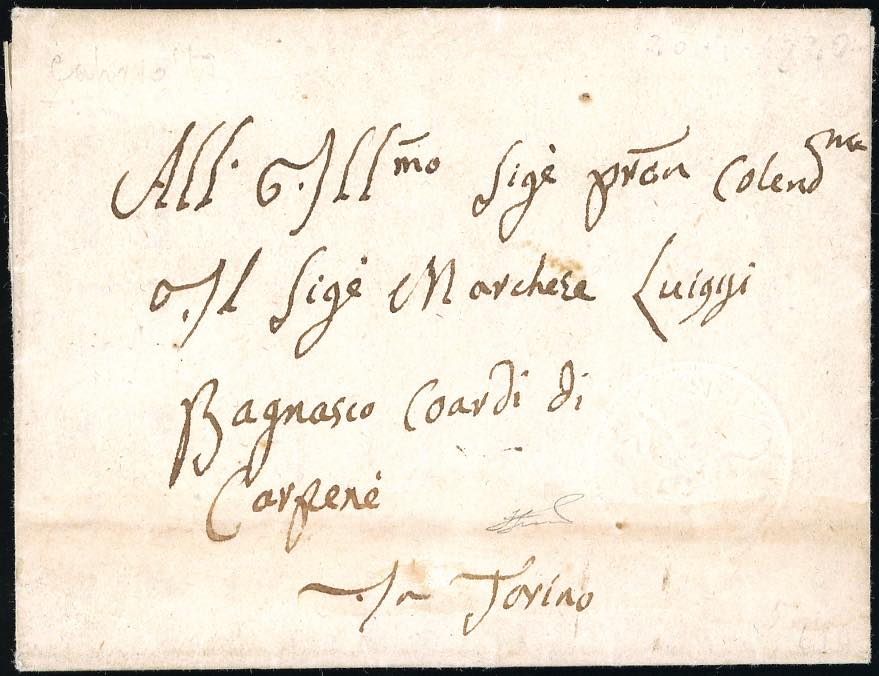 All' Ill.mo Sigē prōn Colend.mo
Il Sigē Marchese Luiggi
Bagnasco Coardi di
Carpenē
In Torino